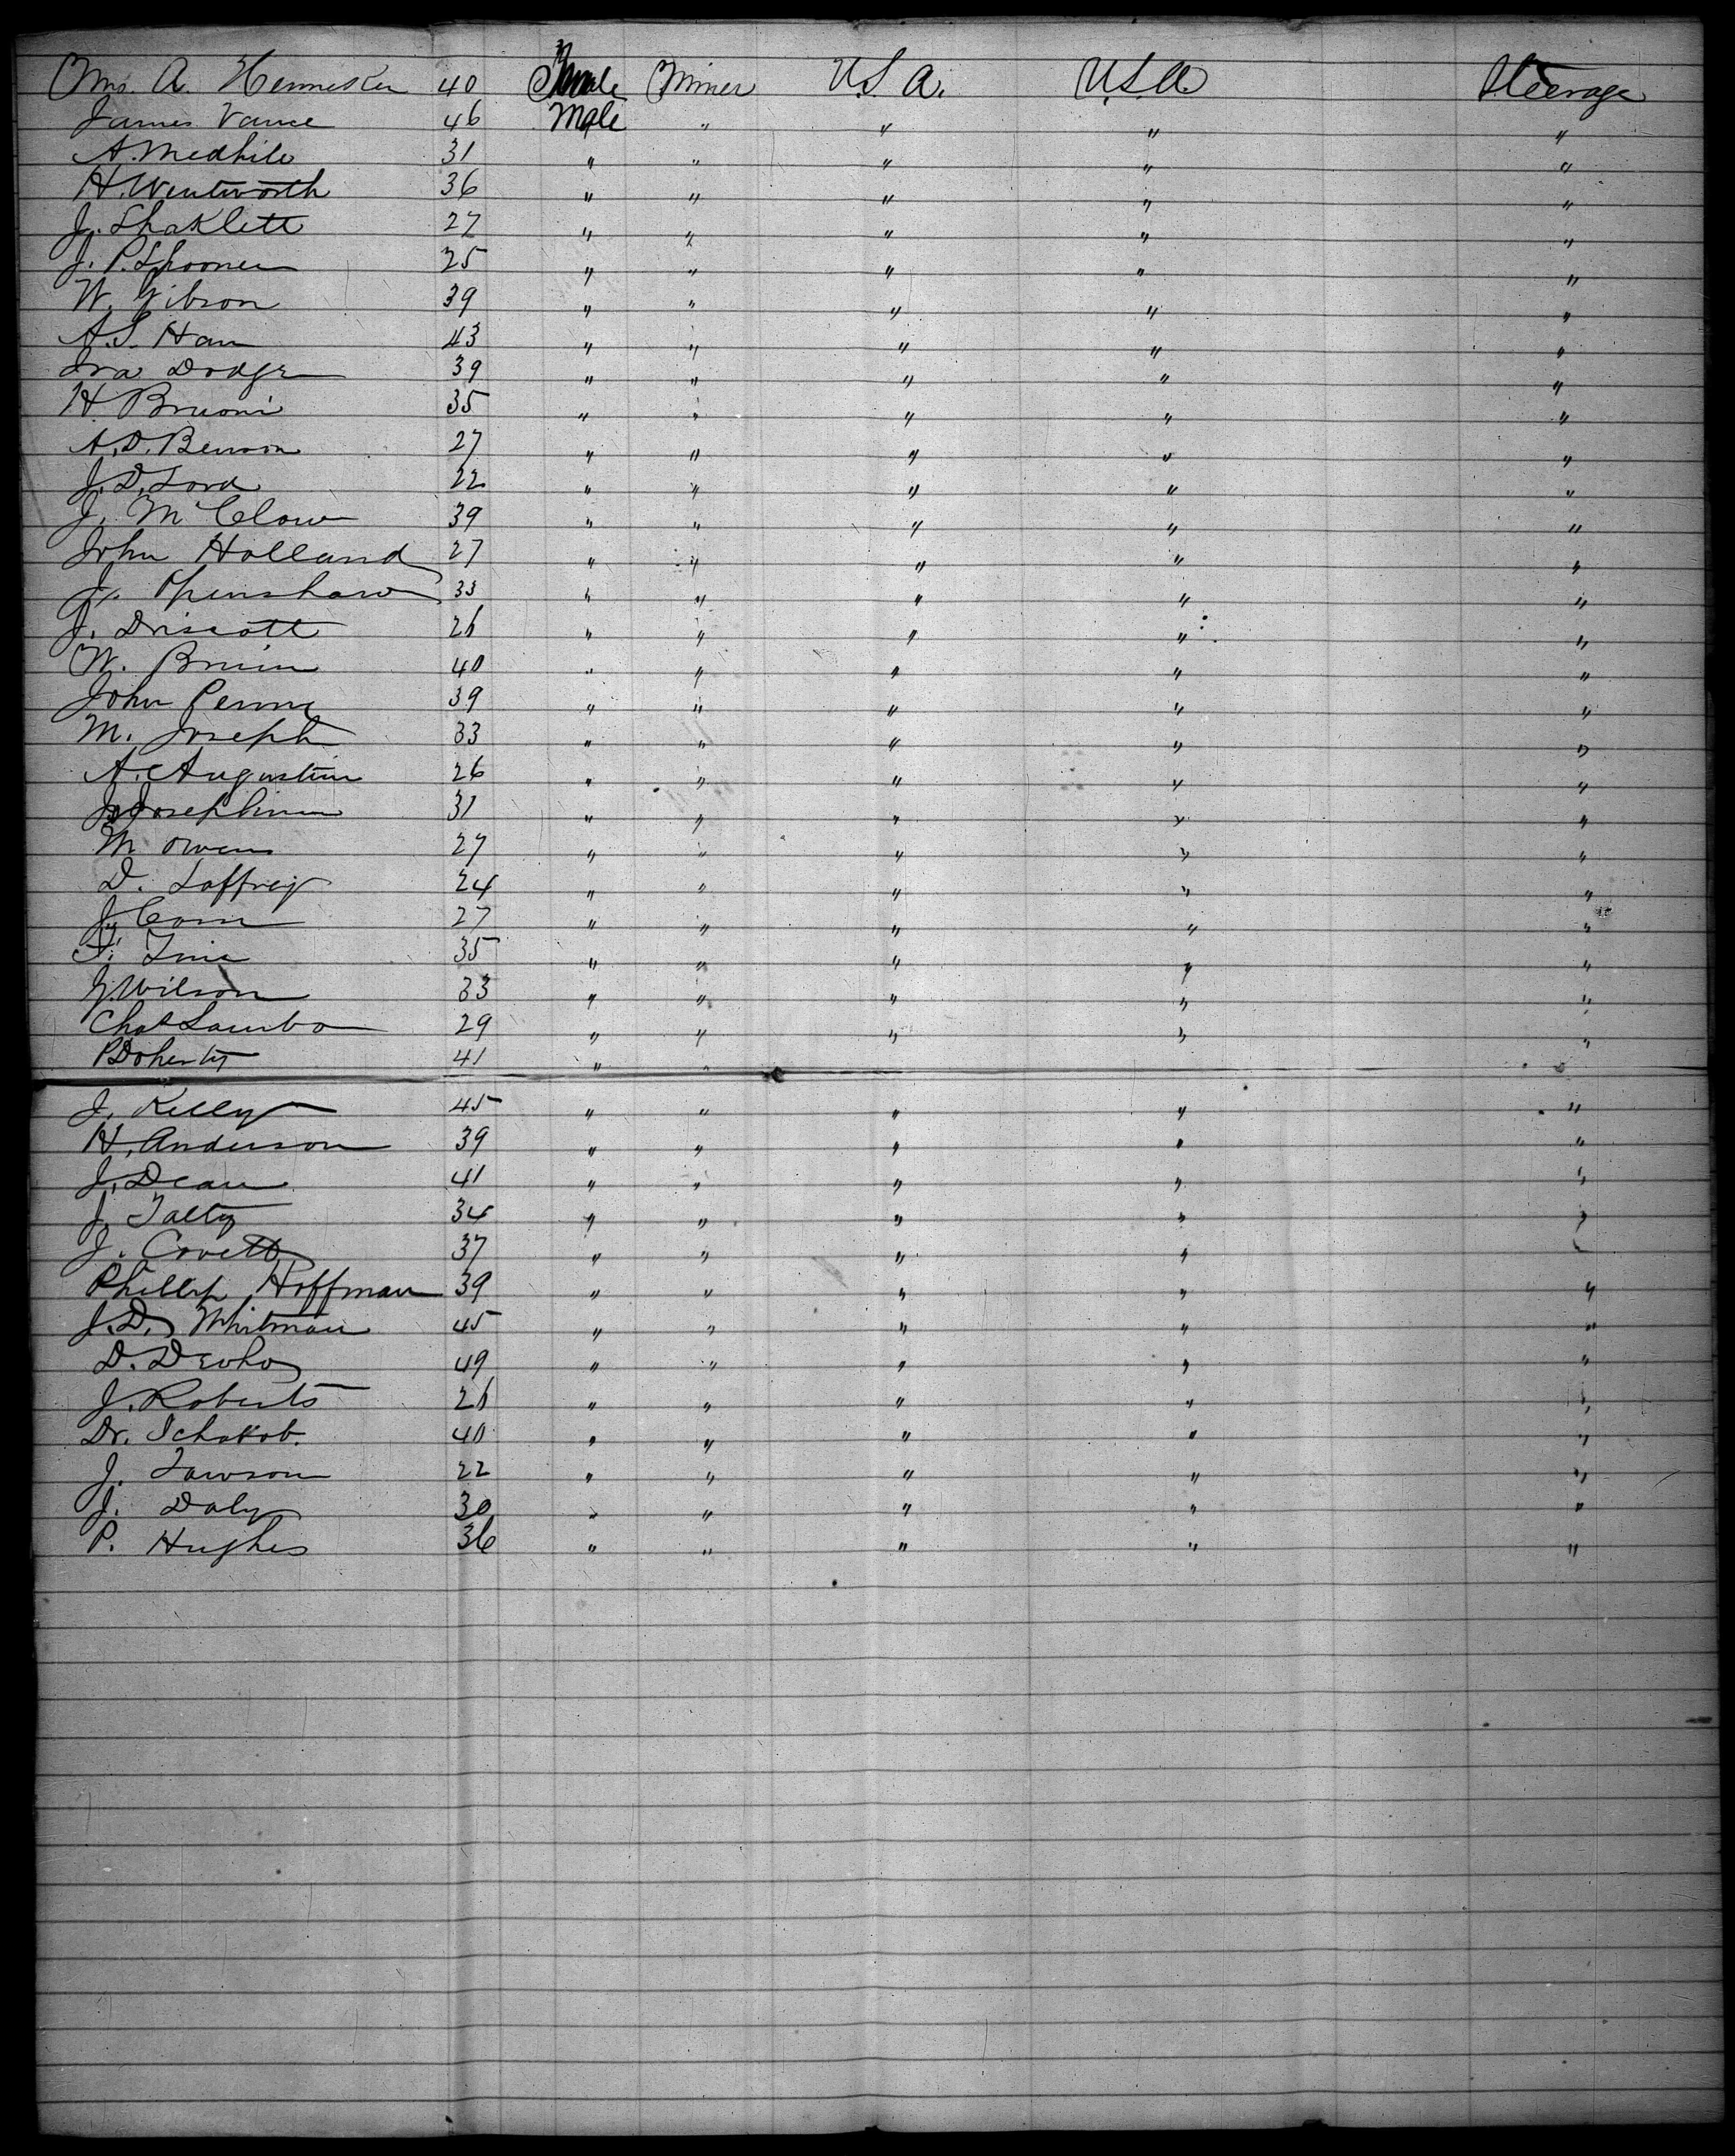 Mrs. A. Hennesker 40 Female Miner U.S.A. U.S.A. Steerage
James Vance 46 Male " " " "
A. Medhile 31 " " " " "
H. Wentworth 36 " " " " "
J. Shaklett 27 " " " " "
J. P. Spooner 25 " " " " "
W. Gibson 39 " " " " "
A. S. Ham 43 " " " " "
Ira Dodge 39 " " " " "
H Bruoni 35 " " " " "
A. D. Benson 27 " " " " "
J. D. Lord 22 " " " " "
J. McClow 39 " " " " "
John Holland 27 " " " " "
J. Openshaw 33 " " " " "
J. Driscott 26 " " " " "
W. Bruin 40 " " " " "
John Penny 39 " " " " "
M. Joseph 33 " " " " "
A. Augustin 26 " " " " "
J. Josephinn 31 " " " " "
M Owens 27 " " " " "
D. Laffrey 24 " " " " "
J. Corn 27 " " " " "
35 " " " " "
J. Wilson 33 " " " " "
Chas Lambo 29 " " " " "
P Doherty 41 " "
J. Kelly 45 " " " " "
H. Anderson 39 " " " " "
J. Dean 41 " " " " "
J. Talty 34 " " " " "
J. Covett 37 " " " "
Phillip Hoffman 39 " " " " "
J. D. Whitman 45 " " " " "
D. 49 " " " " "
J. Roberts 26 " " " " "
Dr. Schakob. 40 " " " " "
J. Lawson 22 " " " " "
J. Daly 30 " " " " "
P. Hughes 36 " " " " "